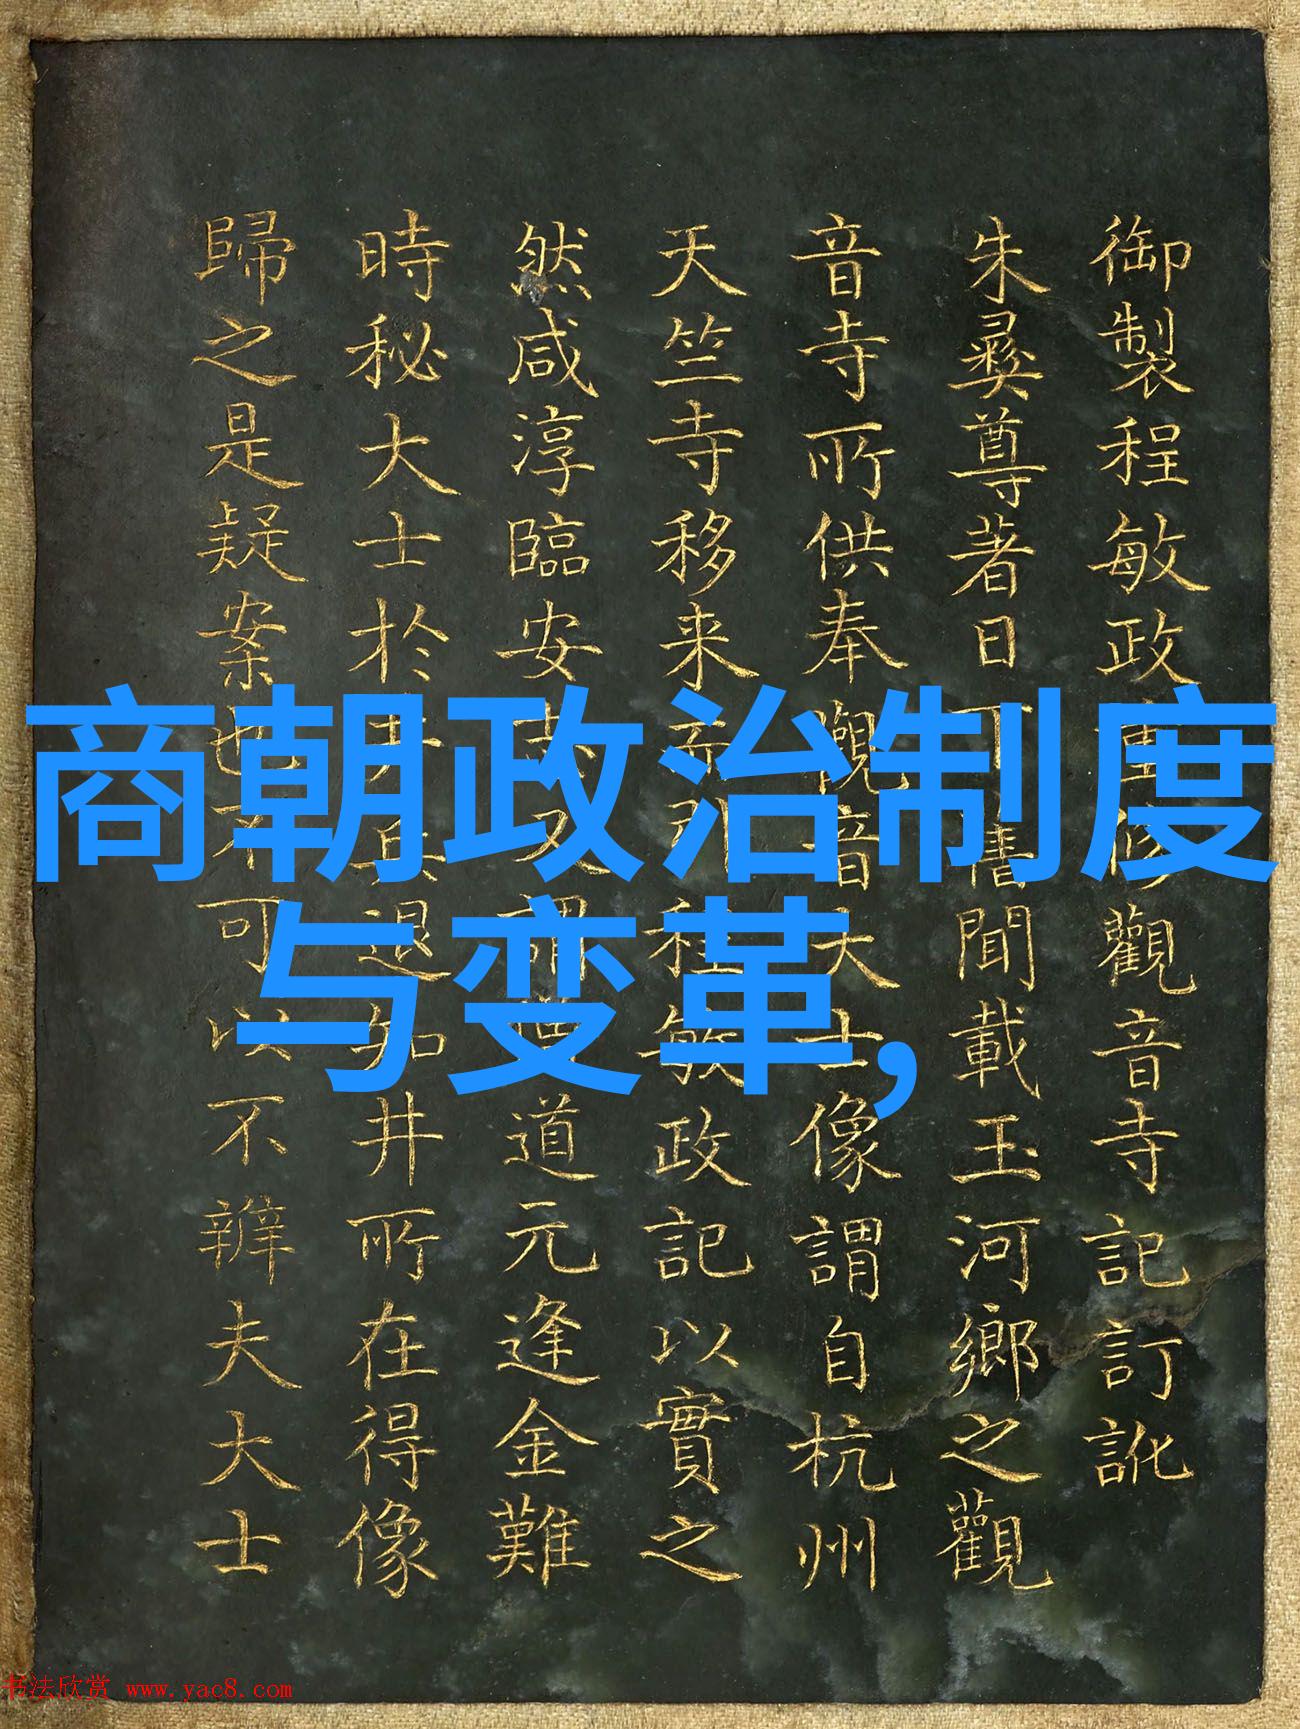 御製程敏政重修觀音寺記訂訛
朱彝尊著日下舊聞載玉河鄉之觀
音寺所供奉觀音大士像謂自杭州
天竺寺移来引程敏政記以實之
然咸淳臨安志又謂道元逢金難
時秘大士於井兵退如井所在得像
歸之是疑案也不可以不辨夫大士
商朝政治制度
与变革,
书法欣赏 www.yac8.com